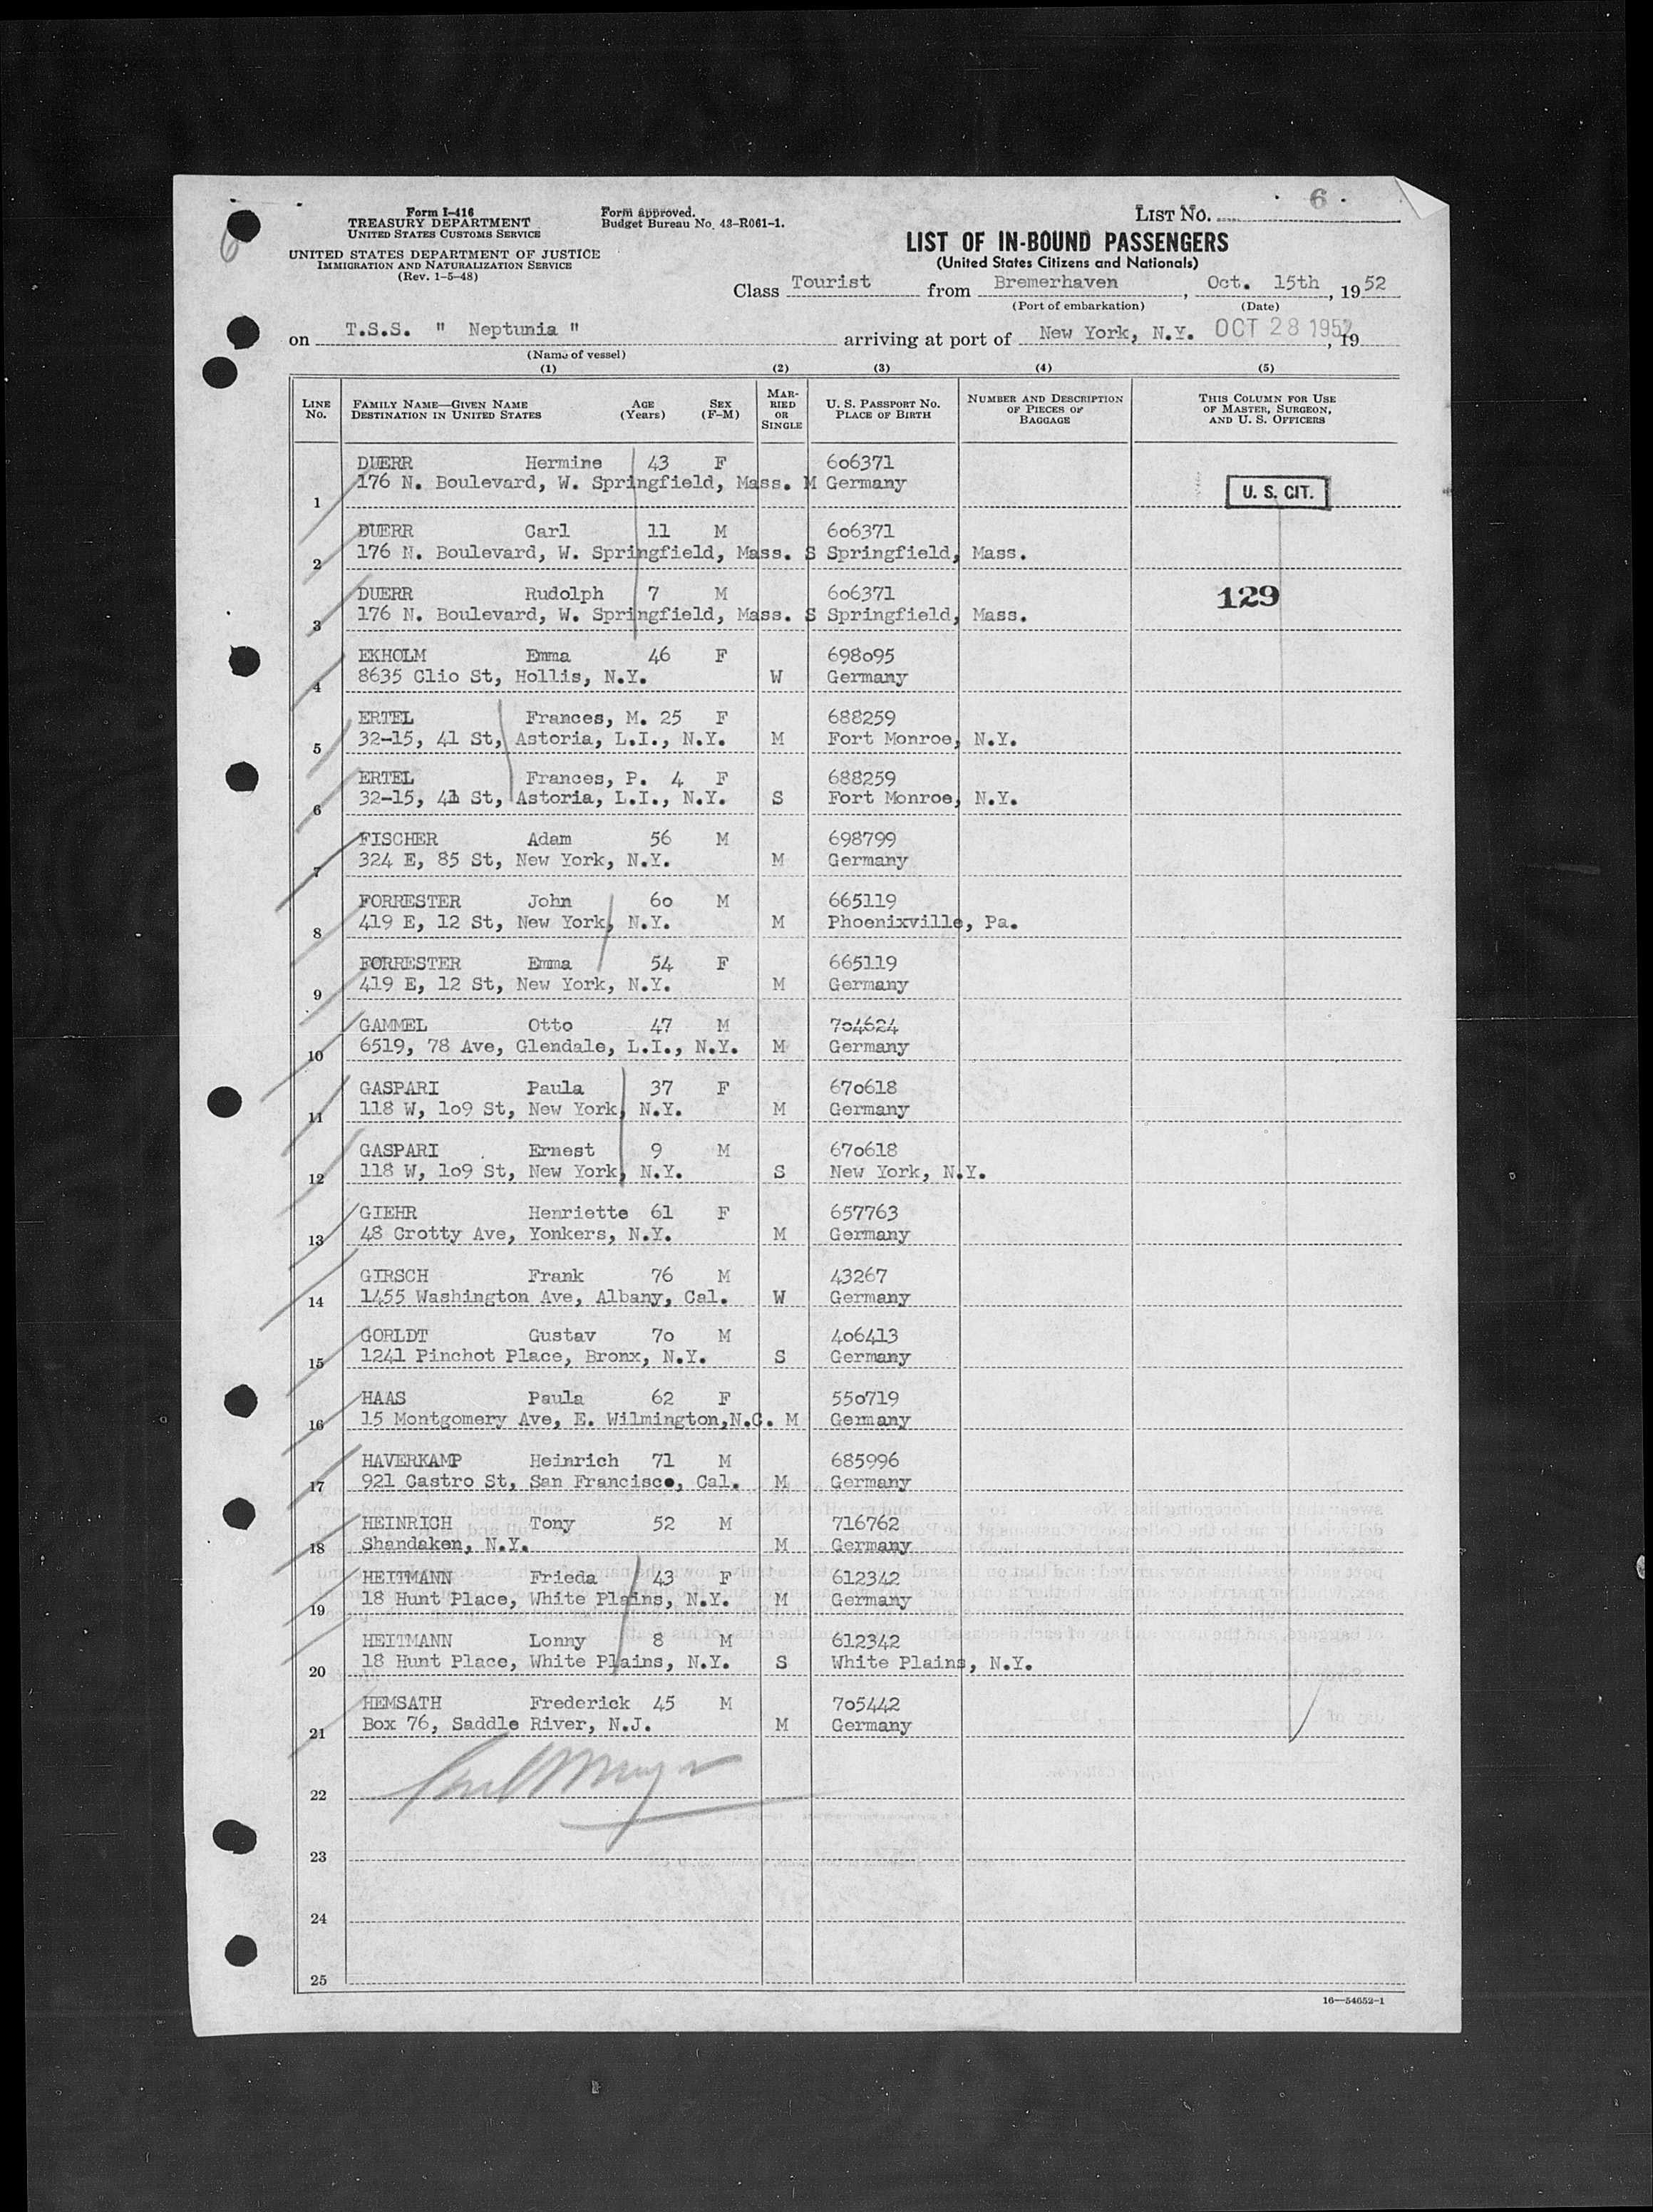 6
Form I-416
TREASURY DEPARTMENT
UNITED STATES CUSTOMS SERVICE
UNITED STATES DEPARTMENT OF JUSTICE
IMMIGRATION AND NATURALIZATION SERVICE
(Rev. 1-5-48)
Form approved.
Budget Bureau No. 43-R061-1.
LIST NO. 6
LIST OF IN-BOUND PASSENGERS
(United States Citizens and Nationals)
Class Tourist from Bremerhaven, Oct. 15th, 1952
(Port of embarkation) (Date)
on T.S.S. " Neptunia " arriving at port of New York, N.Y. OCT 28 1952, 19
(Name of vessel)
(1) (2) (3) (4) (5)
LINE NO. FAMILY NAME—GIVEN NAME DESTINATION IN UNITED STATES AGE (Years) SEX (F-M) MARRIED OR SINGLE U. S. PASSPORT NO. PLACE OF BIRTH NUMBER AND DESCRIPTION OF PIECES OF BAGGAGE THIS COLUMN FOR USE OF MASTER, SURGEON, AND U. S. OFFICERS
DUERR Hermine 43 F 606371
1 176 N. Boulevard, W. Springfield, Mass. M Germany U. S. CIT.
DUERR Carl 11 M 606371
2 176 N. Boulevard, W. Springfield, Mass. S Springfield, Mass.
DUERR Rudolph 7 M 606371 129
3 176 N. Boulevard, W. Springfield, Mass. S Springfield, Mass.
EKHOLM Emma 46 F 698095
4 8635 Clio St, Hollis, N.Y. W Germany
ERTEL Frances, M. 25 F 688259
5 32-15, 41 St, Astoria, L.I., N.Y. M Fort Monroe, N.Y.
ERTEL Frances, P. 4 F 688259
6 32-15, 41 St, Astoria, L.I., N.Y. S Fort Monroe, N.Y.
FISCHER Adam 56 M 698799
7 324 E, 85 St, New York, N.Y. M Germany
FORRESTER John 60 M 665119
8 419 E, 12 St, New York, N.Y. M Phoenixville, Pa.
FORRESTER Emma 54 F 665119
9 419 E, 12 St, New York, N.Y. M Germany
GAMMEL Otto 47 M 704624
10 6519, 78 Ave, Glendale, L.I., N.Y. M Germany
GASPARI Paula 37 F 670618
11 118 W, 109 St, New York, N.Y. M Germany
GASPARI Ernest 9 M 670618
12 118 W, 109 St, New York, N.Y. S New York, N.Y.
GIEHR Henriette 61 F 657763
13 48 Crotty Ave, Yonkers, N.Y. M Germany
GIRSCH Frank 76 M 43267
14 1455 Washington Ave, Albany, Cal. W Germany
GORLDT Gustav 70 M 406413
15 1241 Pinchot Place, Bronx, N.Y. S Germany
HAAS Paula 62 F 550719
16 15 Montgomery Ave, E. Wilmington,N.C. M Germany
HAVERKAMP Heinrich 71 M 685996
17 921 Castro St, San Francisco, Cal. M Germany
HEINRICH Tony 52 M 716762
18 Shandaken, N.Y. M Germany
HEITMANN Frieda 43 F 612342
19 18 Hunt Place, White Plains, N.Y. M Germany
HEITMANN Lonny 8 M 612342
20 18 Hunt Place, White Plains, N.Y. S White Plains, N.Y.
HEMSATH Frederick 45 M 705442
21 Box 76, Saddle River, N.J. M Germany
22
23
24
25
16—54652-1